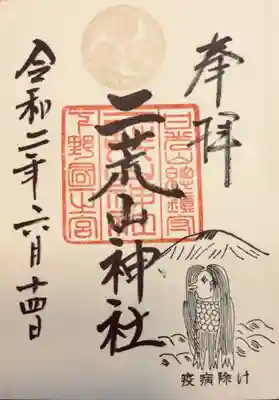 奉拝
日光山總鎮守
二荒山神社
下野國一宮
令和二年六月十四日
疫病除け